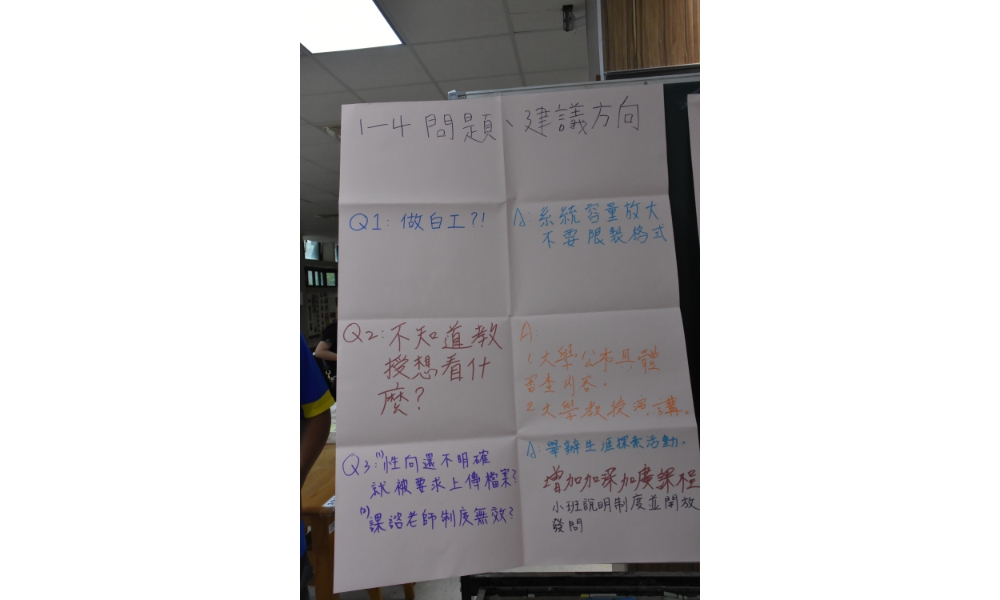 1-4 問題、建議方向
Q1: 做白工?!
A: 系統容量放大
不要限製格式
Q2: 不知道教
授想看什
麼?
A:
1. 大學公布具體
審查內容。
2. 大學教授演講。
Q3: (1) 性向還不明確
就被要求上傳檔案?
(2) 課諮老師制度無效?
A: 舉辦生涯探索活動。
增加加深加廣課程
小班說明制度並開放
發問